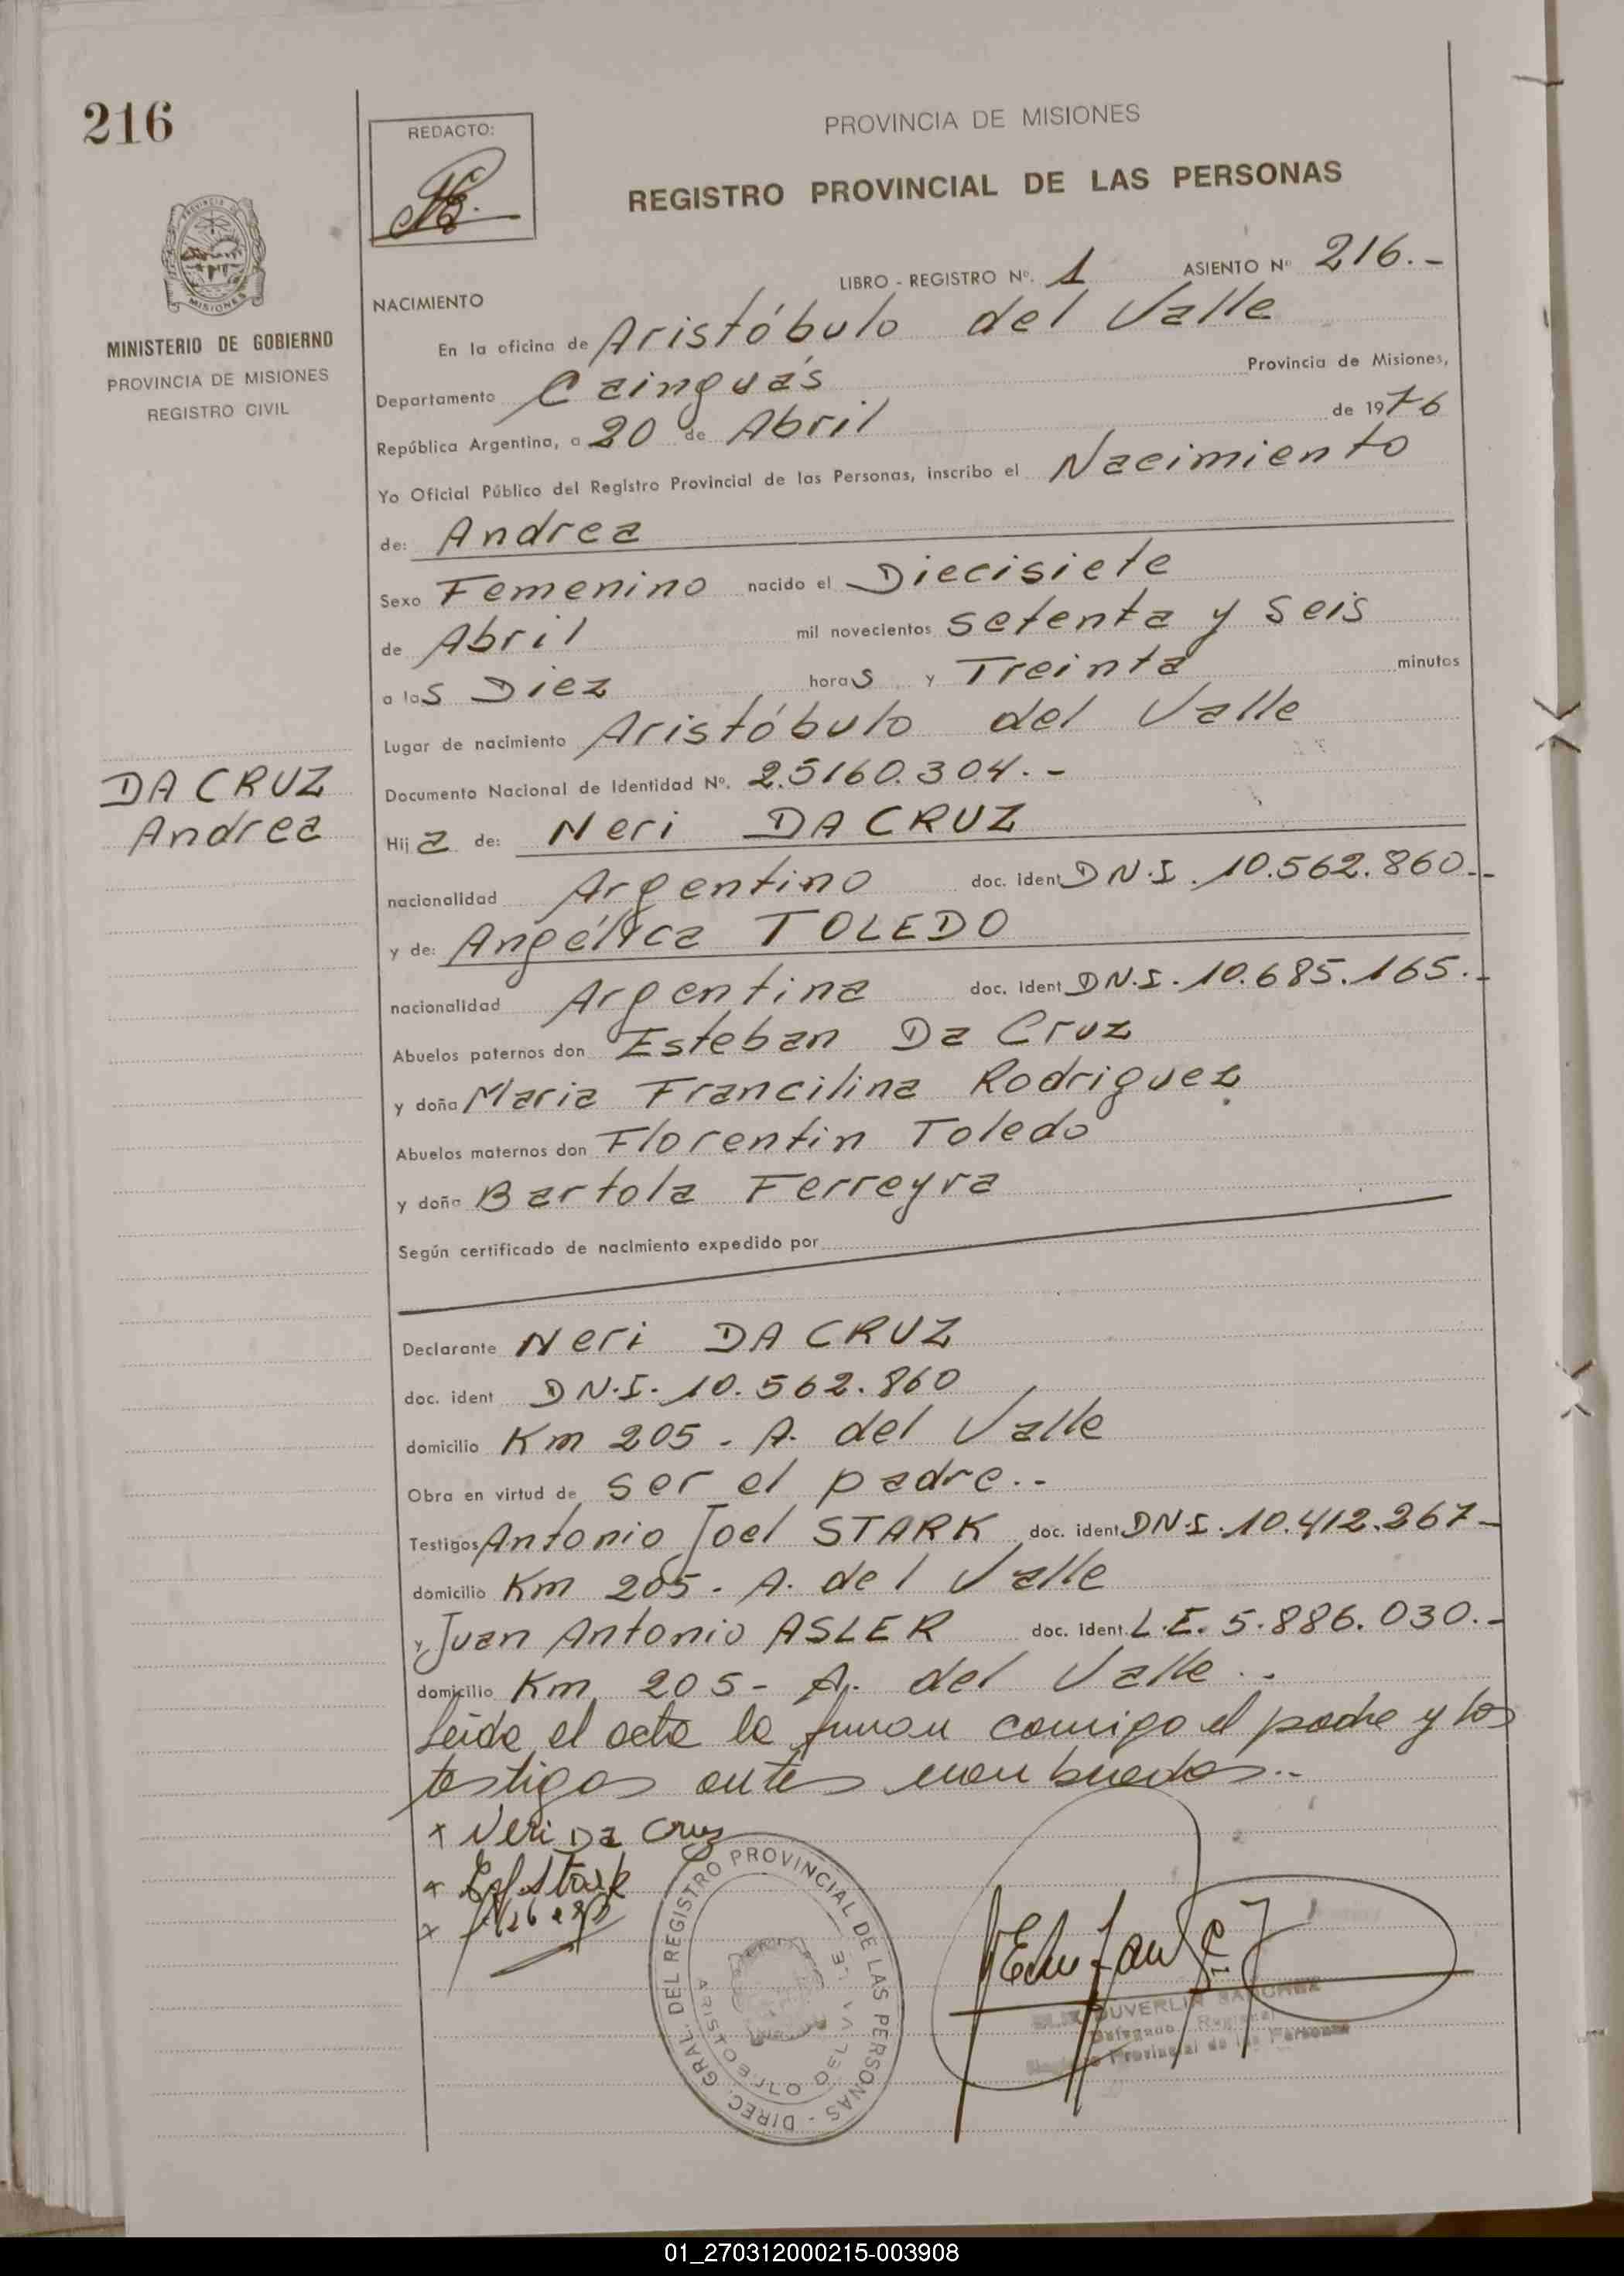 216
REDACTO:
PROVINCIA DE MISIONES
REGISTRO PROVINCIAL DE LAS PERSONAS
MISIONES
MINISTERIO DE GOBIERNO
PROVINCIA DE MISIONES
REGISTRO CIVIL
LIBRO - REGISTRO Nº. 1 ASIENTO Nº 216.-
NACIMIENTO
En la oficina de Aristóbulo del Valle
Departamento Cainguás Provincia de Misiones,
República Argentina, a 20 de Abril de 1976
Yo Oficial Público del Registro Provincial de las Personas, inscribo el Nacimiento
de: Andrea
Sexo Femenino nacido el Diecisiete
de Abril mil novecientos setenta y seis
a las Diez horas y Treinta minutos
Lugar de nacimiento Aristóbulo del Valle
Documento Nacional de Identidad Nº. 25160.304.-
DA CRUZ
Andrea
Hija de: Neri DA CRUZ
nacionalidad Argentino doc. ident D N.I. 10.562.860.-
y de: Angélica TOLEDO
nacionalidad Argentina doc. ident D N.I. 10.685.165.-
Abuelos paternos don Esteban Da Cruz
y doña Maria Francilina Rodriguez
Abuelos maternos don Florentin Toledo
y doña Bartola Ferreyra
Según certificado de nacimiento expedido por
Declarante Neri DA CRUZ
doc. ident D N.I. 10.562.860
domicilio Km 205 - A. del Valle
Obra en virtud de ser el padre.-
Testigos Antonio Joel STARK doc. ident D N.I. 10.412.267-
domicilio Km 205 - A. del Valle
y Juan Antonio ASLER doc. ident. L.E. 5.886.030.-
domicilio Km 205 - A. del Valle.-
Leida el acta la firman conmigo el padre y los
testigos antes nombrados.-
x Neri Da Cruz
x Stark
x
DIREC. GRAL. DEL REGISTRO PROVINCIAL DE LAS PERSONAS -
ARISTOBULO DEL VALLE
DUVERLIN SANCHEZ
Delegado Regional
Provincial de las Personas
01_270312000215-003908